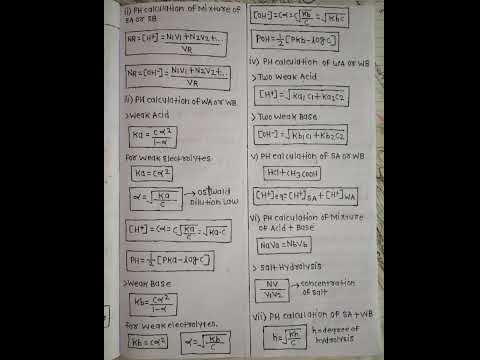 ii) PH calculation of Mixture of
SA or SB
NR = [H⁺] = N1V1 + N2V2 + ...
VR
NR = [OH⁻] = N1V1 + N2V2 + ...
VR
iii) PH calculation of WA or WB
> Weak Acid
Ka = Cα²
1-α
for weak Electrolytes
Ka = Cα²
α = √Ka/C → Ostwald
Dilution Law
[H⁺] = Cα = C√Ka/C = √Ka·C
PH = 1/2 [PKa - log C]
> Weak Base
Kb = Cα²
1-α
for weak Electrolytes.
Kb = Cα² α = √Kb/C
[OH⁻] = Cα = C√Kb/C = √Kb C
POH = 1/2 [PKb - log C]
iv) PH calculation of WA or WB
> Two Weak Acid
[H⁺] = √Ka1 C1 + Ka2 C2
> Two Weak Base
[OH⁻] = √Kb1 C1 + Kb2 C2
v) PH calculation of SA or WB
HCl + CH3COOH
[H⁺]eq = [H⁺]SA + [H⁺]WA
vi) PH calculation of Mixture
of Acid + Base
NaVa = NbVb
> Salt Hydrolysis
NV → concentration
V1V2 of salt
vii) PH calculation of SA + WB
h = √Kh/C h = degree of
hydrolysis